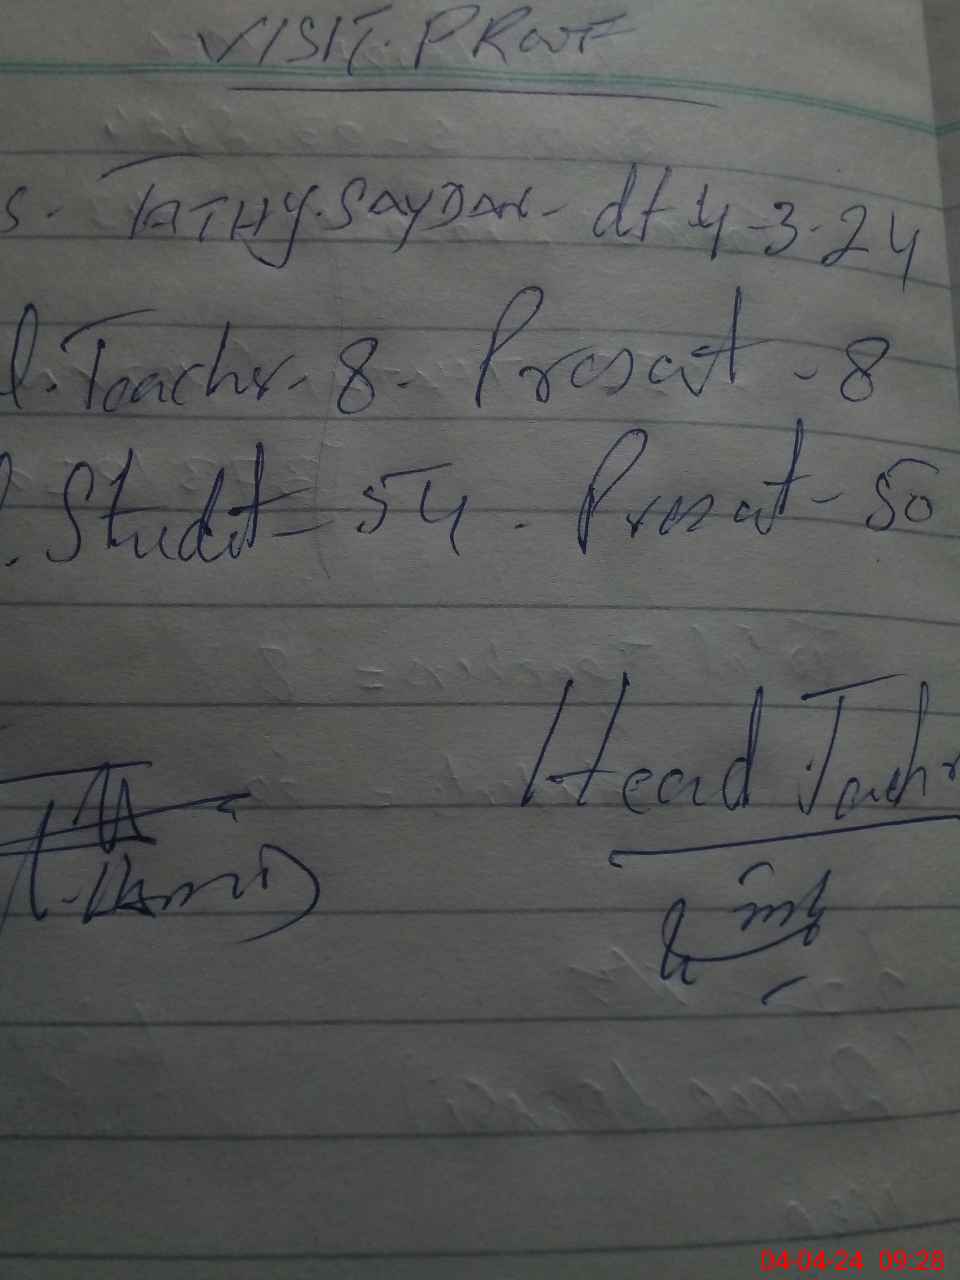 VISIT. PROOF
s. TATHY. SAYDAN - dt 4-3-24
l. Teacher - 8 - Present - 8
l. Studet = 54 . Present - 50
Head Teachr
04-04-24 09:28